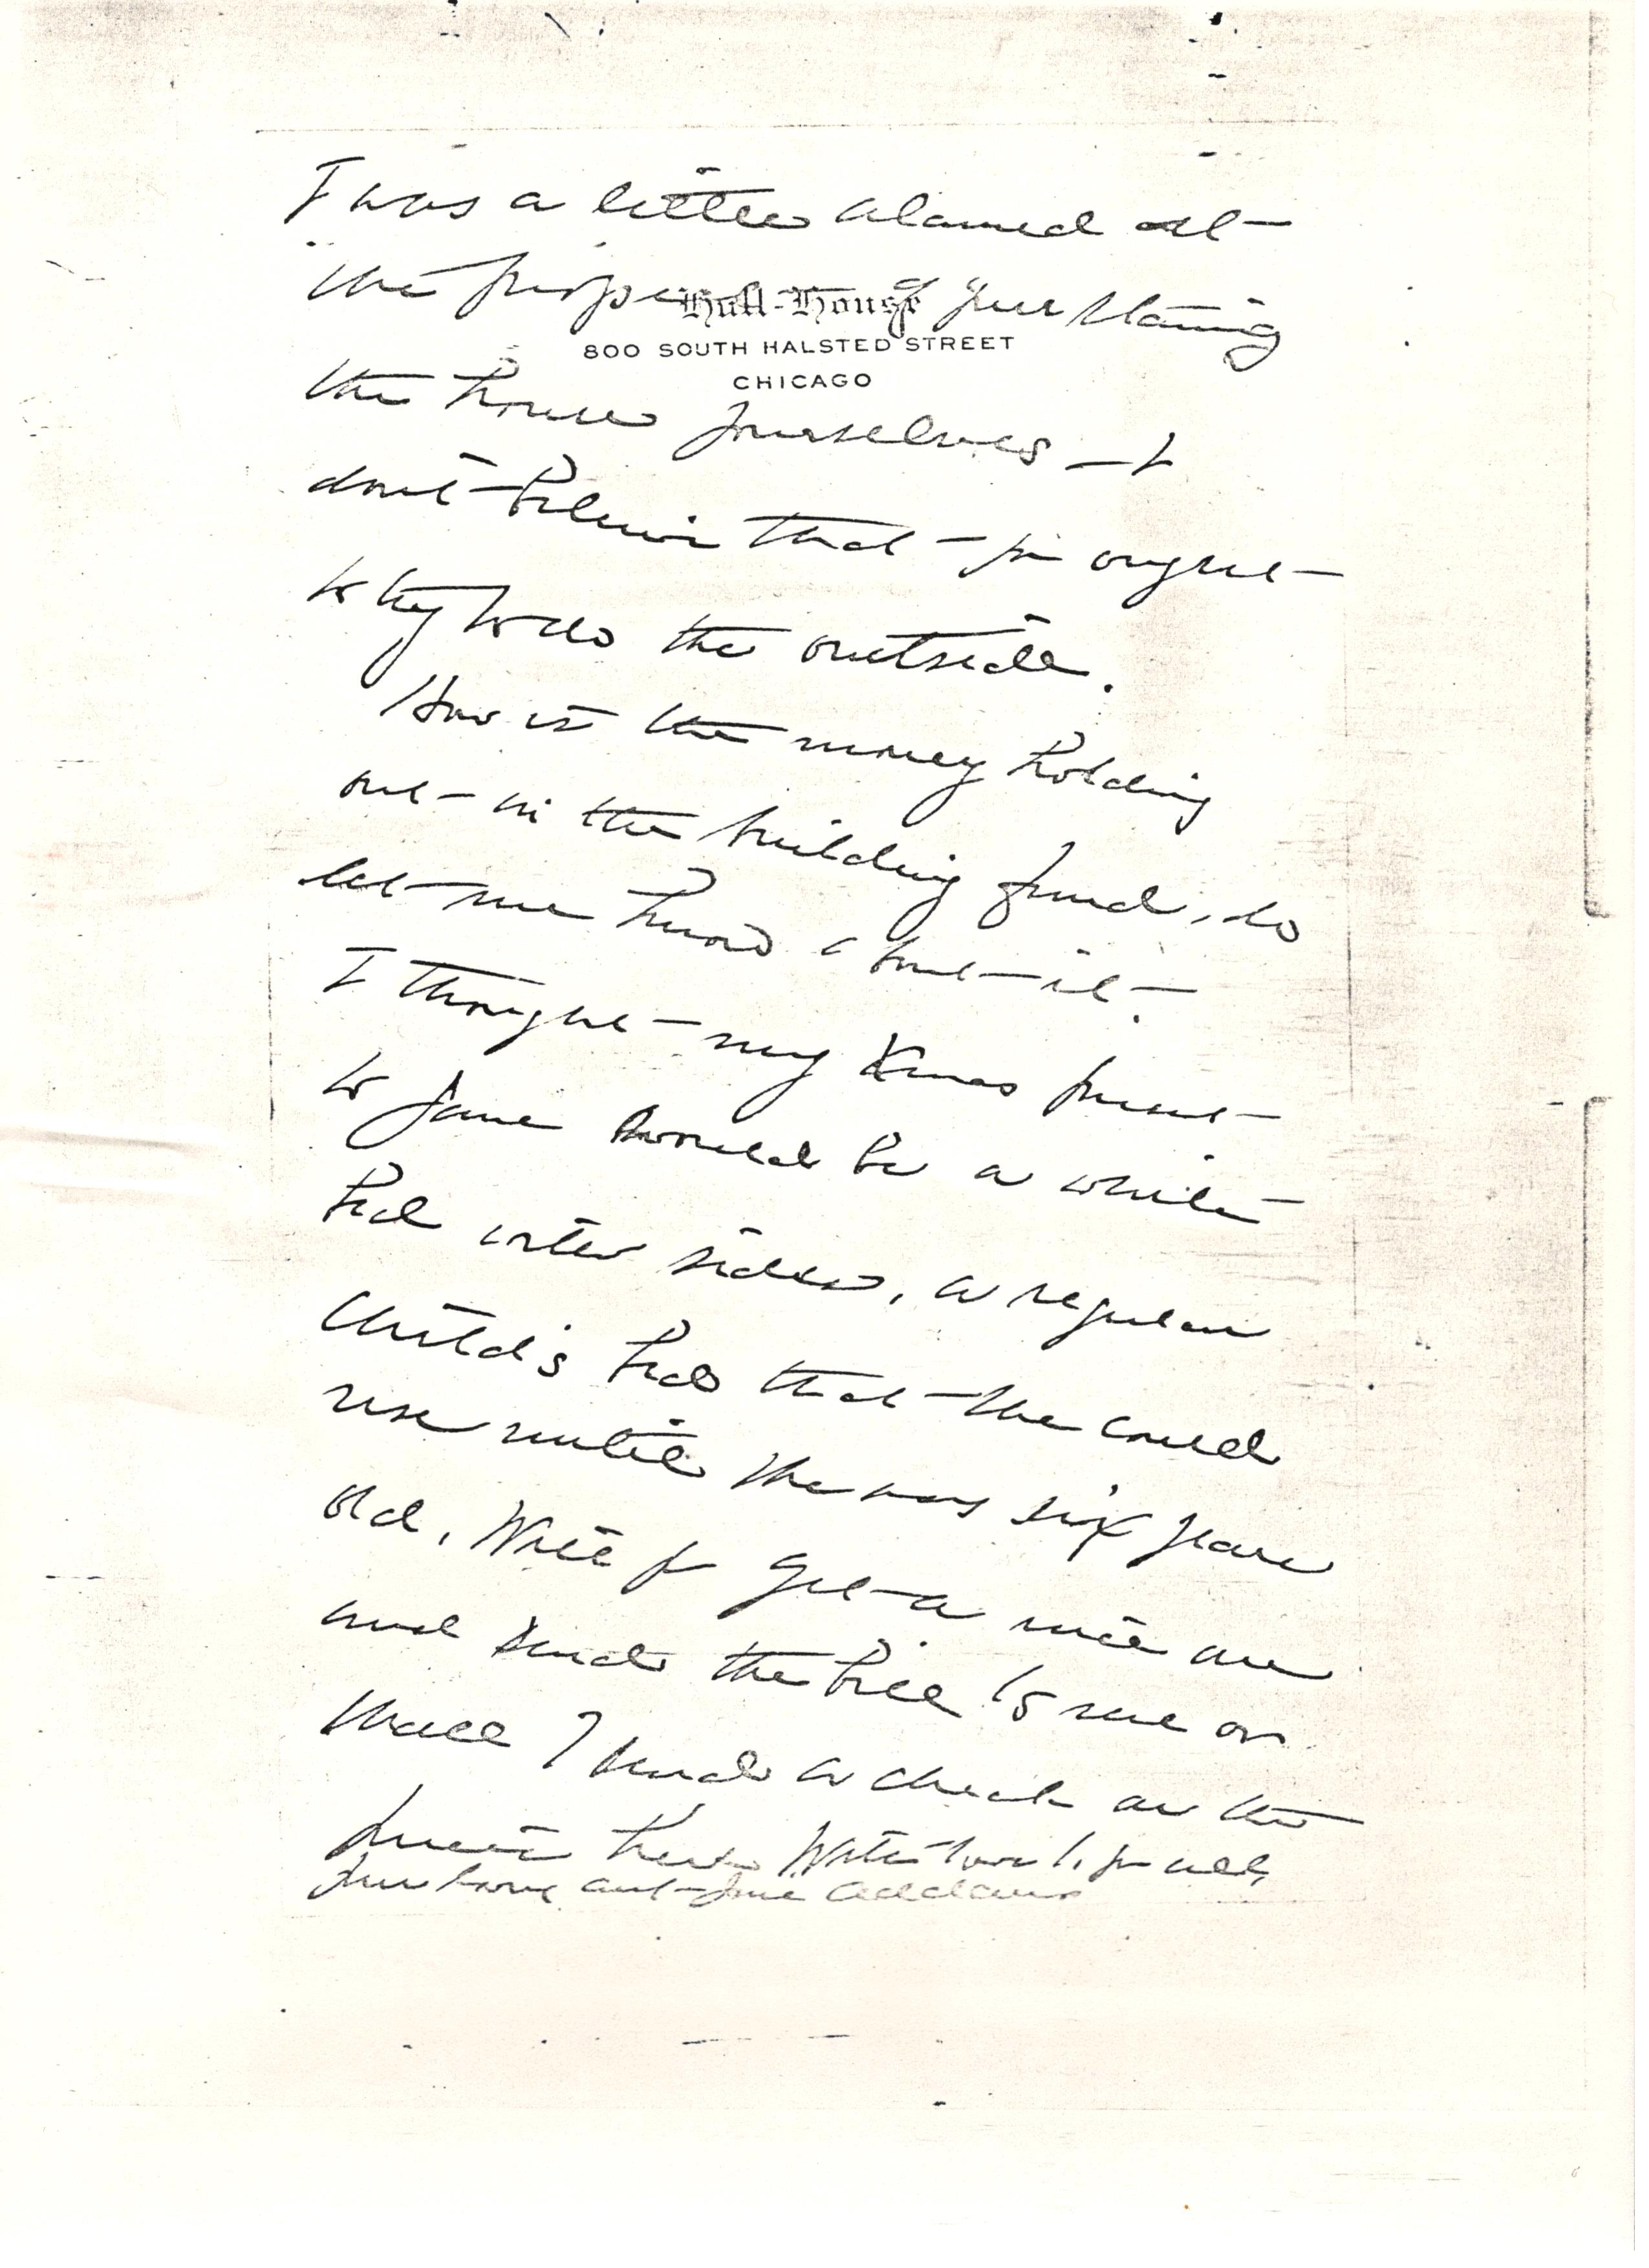 I was a little alarmed at
the prospect of your staining
Hull-House
800 SOUTH HALSTED STREET
CHICAGO
the house yourselves - I
don't believe that you ought
to try to do the outside.
How is the money holding
out in the building fund, do
let me know about it.
I thought my Xmas present
to Jane would be a white
bed with sides, a regular
child's bed that she could
use until she was six years
old. Will you get a nice one
and send the bill to me or
shall I send a check as the
With love to you all,
Your loving aunt Jane Addams